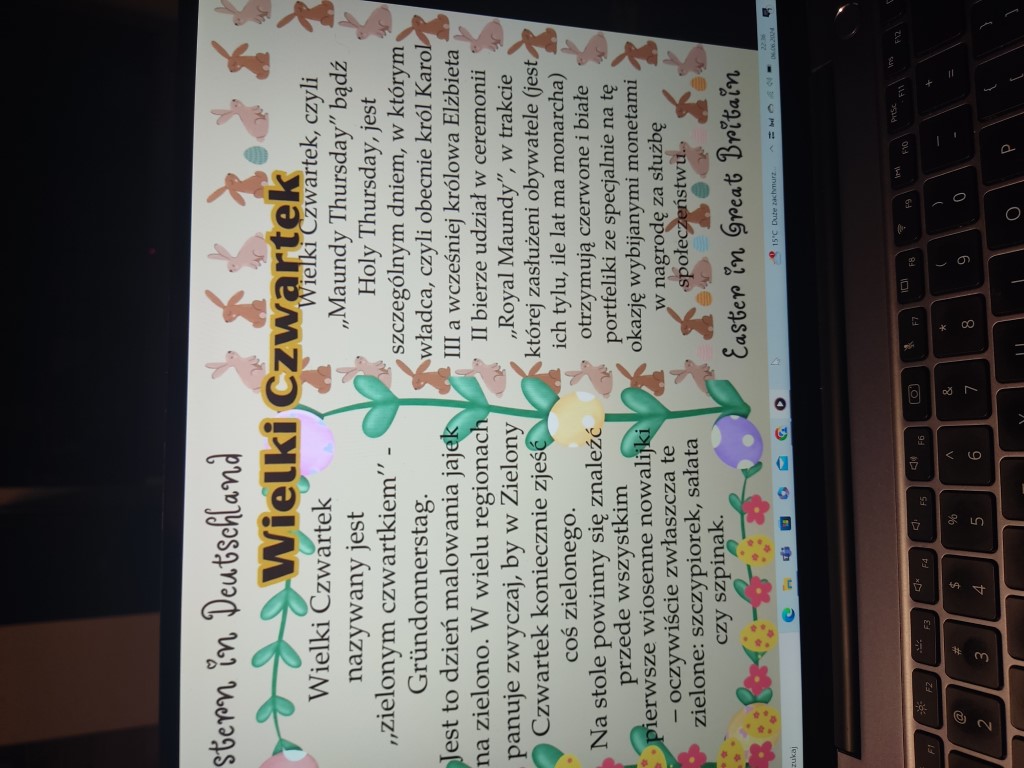 stern in Deutschland
Wielki Czwartek
Wielki Czwartek
nazywany jest
„zielonym czwartkiem” -
Gründonnerstag.
Jest to dzień malowania jajek
na zielono. W wielu regionach
panuje zwyczaj, by w Zielony
Czwartek koniecznie zjeść
coś zielonego.
Na stole powinny się znaleźć
przede wszystkim
pierwsze wiosenne nowalijki
– oczywiście zwłaszcza te
zielone: szczypiorek, sałata
czy szpinak.
Wielki Czwartek, czyli
„Maundy Thursday” bądź
Holy Thursday, jest
szczególnym dniem, w którym
władca, czyli obecnie król Karol
III a wcześniej królowa Elżbieta
II bierze udział w ceremonii
„Royal Maundy”, w trakcie
której zasłużeni obywatele (jest
ich tylu, ile lat ma monarcha)
otrzymują czerwone i białe
portfeliki ze specjalnie na tę
okazję wybijanymi monetami
w nagrodę za służbę
społeczeństwu.
Easter in Great Britain
zukaj
15°C Duże zachmurz.
22:36
F1 F2 F3 F4 F5 F6 F7 F8 F9 F10 F11 F12
PrtSc Ins
@ # $ % ^ & * ( ) _ +
2 3 4 5 6 7 8 9 0 - =
U I O P { [ } ]